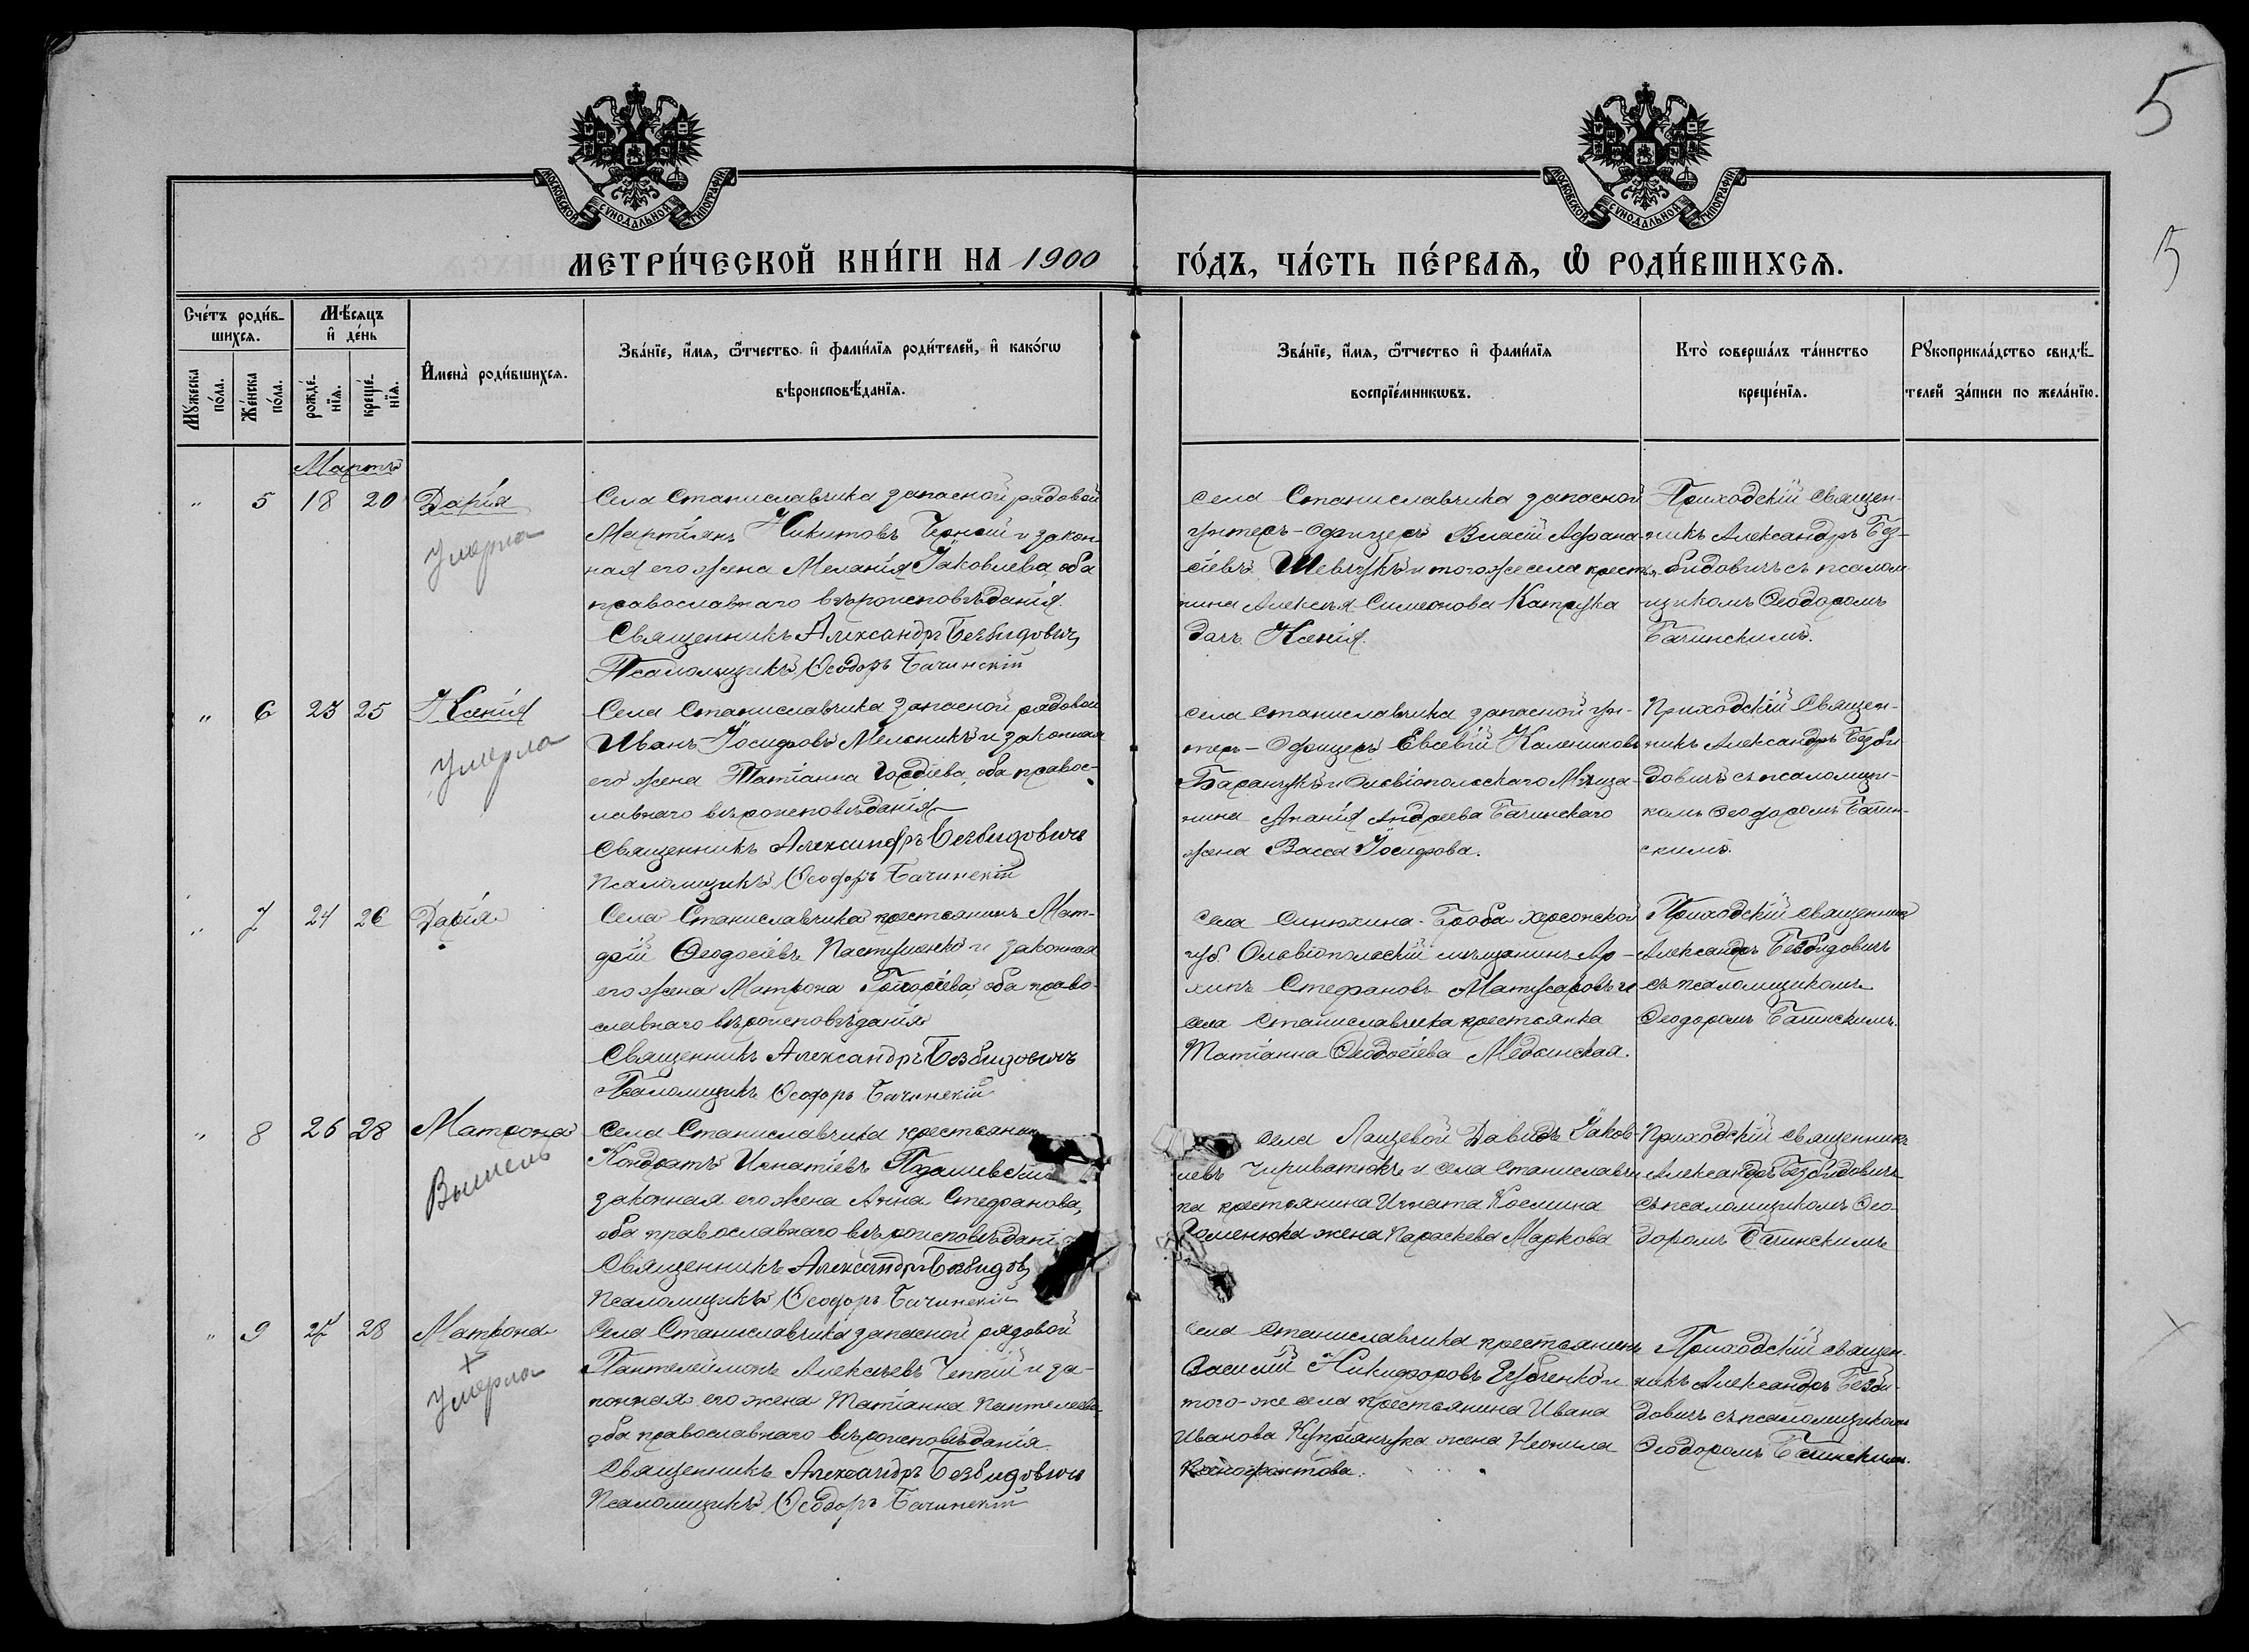 5
5
МОСКОВСКОЙ СѴНОДАЛЬНОЙ ТИПОГРАФІИ
МОСКОВСКОЙ СѴНОДАЛЬНОЙ ТИПОГРАФІИ
МЕТРИ́ЧЕСКОЙ КНИ́ГИ НА 1900
ГО́ДЪ, ЧА́СТЬ ПЕ́РВАѦ, Ѽ РОДИ́ВШИХСѦ.
Сче́тъ роди́в-
шихсѧ.
Мѣ́сѧцъ
и҆ де́нь
Мꙋ́жеска
по́ла.
Же́нска
по́ла.
рожде́-
нїѧ.
креще́-
нїѧ.
И҆мена̀ роди́вшихсѧ.
Зва́нїе, и҆́мѧ, ѻ҆́тчество и҆ фами́лїѧ роди́телей, и҆ како́гѡ
вѣроисповѣ́данїѧ.
Зва́нїе, и҆́мѧ, ѻ҆́тчество и҆ фами́лїѧ
воспрїе́мникѡвъ.
Кто̀ соверша́лъ та́инство
креще́нїѧ.
Рꙋкоприкла́дство свидѣ́-
телей за́писи по жела́нїю.
Мартъ
" 5 18 20 Дарія
Умерла
Села Станиславчика запасной рядовой
Мартіянъ Никитовъ Чорній и закон-
ная его жена Меланія Іаковлева, оба
православнаго вѣроисповѣданія.
Священникъ Александръ Безбидовичъ
Псаломщикъ Ѳеодоръ Бачинскій
села Станиславчика запасной
унтеръ-Офицеръ Власій Афана-
сіевъ Шевчукъ и того же села крестья-
нина Алексѣя Симеонова Катрука
дочь Ксенія.
Приходскій священ-
никъ Александръ Без-
бидовичъ съ псалом-
щикомъ Ѳеодоромъ
Бачинскимъ.
" 6 23 25 Ксенія
Умерла
Села Станиславчика запасной рядовой
Иванъ Іосифовъ Мельникъ и законная
его жена Татіанна Гордіева, оба правос-
лавнаго вѣроисповѣданія
Священникъ Александръ Безбидовичъ
Псаломщикъ Ѳеодоръ Бачинскій
села Станиславчика запасной ун-
теръ-Офицеръ Евсевій Калениковъ
Баранукъ и Ольвіопольскаго Мѣща-
нина Ананія Андреева Бачинскаго
жена Васса Іосифова.
Приходскій Священ-
никъ Александръ Безби-
довичъ съ псаломщи-
комъ Ѳеодоромъ Бачин-
скимъ.
" 7 24 26 Дарія
Села Станиславчика крестьянинъ Мат-
фій Ѳеодосіевъ Пастушенко и законная
его жена Матрона Григоріева, оба право-
славнаго вѣроисповѣданія
Священникъ Александръ Безбидовичъ
Псаломщикъ Ѳеодоръ Бачинскій
Села Синюхина-Брода Херсонской
губ. Ольвіопольскій мѣщанинъ Ар-
хипъ Стефановъ и
села Станиславчика крестьянка
Татіанна Ѳеодосіева Медвинская.
Приходскій священникъ
Александръ Безбидовичъ
съ псаломщикомъ
Ѳеодоромъ Бачинскимъ.
" 8 26 28 Матрона
Села Станиславчика крестьянин
Кондратъ Игнатіевъ
законная его жена Анна Стефанова,
оба православнаго вѣроисповѣдані
Священникъ Александръ Безбидов
Псаломщикъ Ѳеодоръ Бачинскій
села Лащевой Давидъ Іаков-
левъ и села Станиславчи-
ка крестьянина Игната Космина
жена Параскева Маркова
Приходскій священникъ
Александръ Безбидовичъ
съ псаломщикомъ Ѳео-
доромъ Бачинскимъ
" 9 27 28 Матрона
Умерла
Села Станиславчика запасной рядовой
Пантелеймонъ Алексѣевъ и за-
конная его жена Татіанна Пантелеева,
оба православнаго вѣроисповѣданія.
Священникъ Александръ Безбидовичъ
Псаломщикъ Ѳеодоръ Бачинскій
Села Станиславчика крестьянинъ
Василій Никифоровъ и
того-же села крестьянина Ивана
Иванова Купріянчука жена Неонила
Ксенофонтова.
Приходскій священ-
никъ Александръ Безби-
довичъ съ псаломщикомъ
Ѳеодоромъ Бачинскимъ.